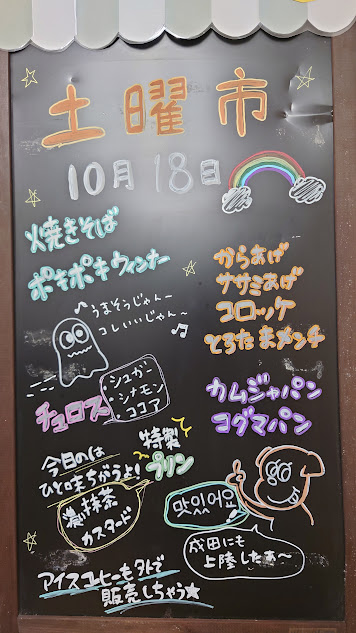 土曜市
10月18日
焼きそば
ポキポキウィンナー
うまそうじゃん〜
コレいいじゃん〜
からあげ
ササミあげ
コロッケ
とろたまメンチ
チュロス
・シュガー
・シナモン
・ココア
カムジャパン
コグマパン
特製
プリン
今日のは
ひと味ちがうよ!
濃抹茶
カスタード
맛있어요
成田にも
上陸したぁ〜
アイスコーヒーも外で
販売しちゃう★